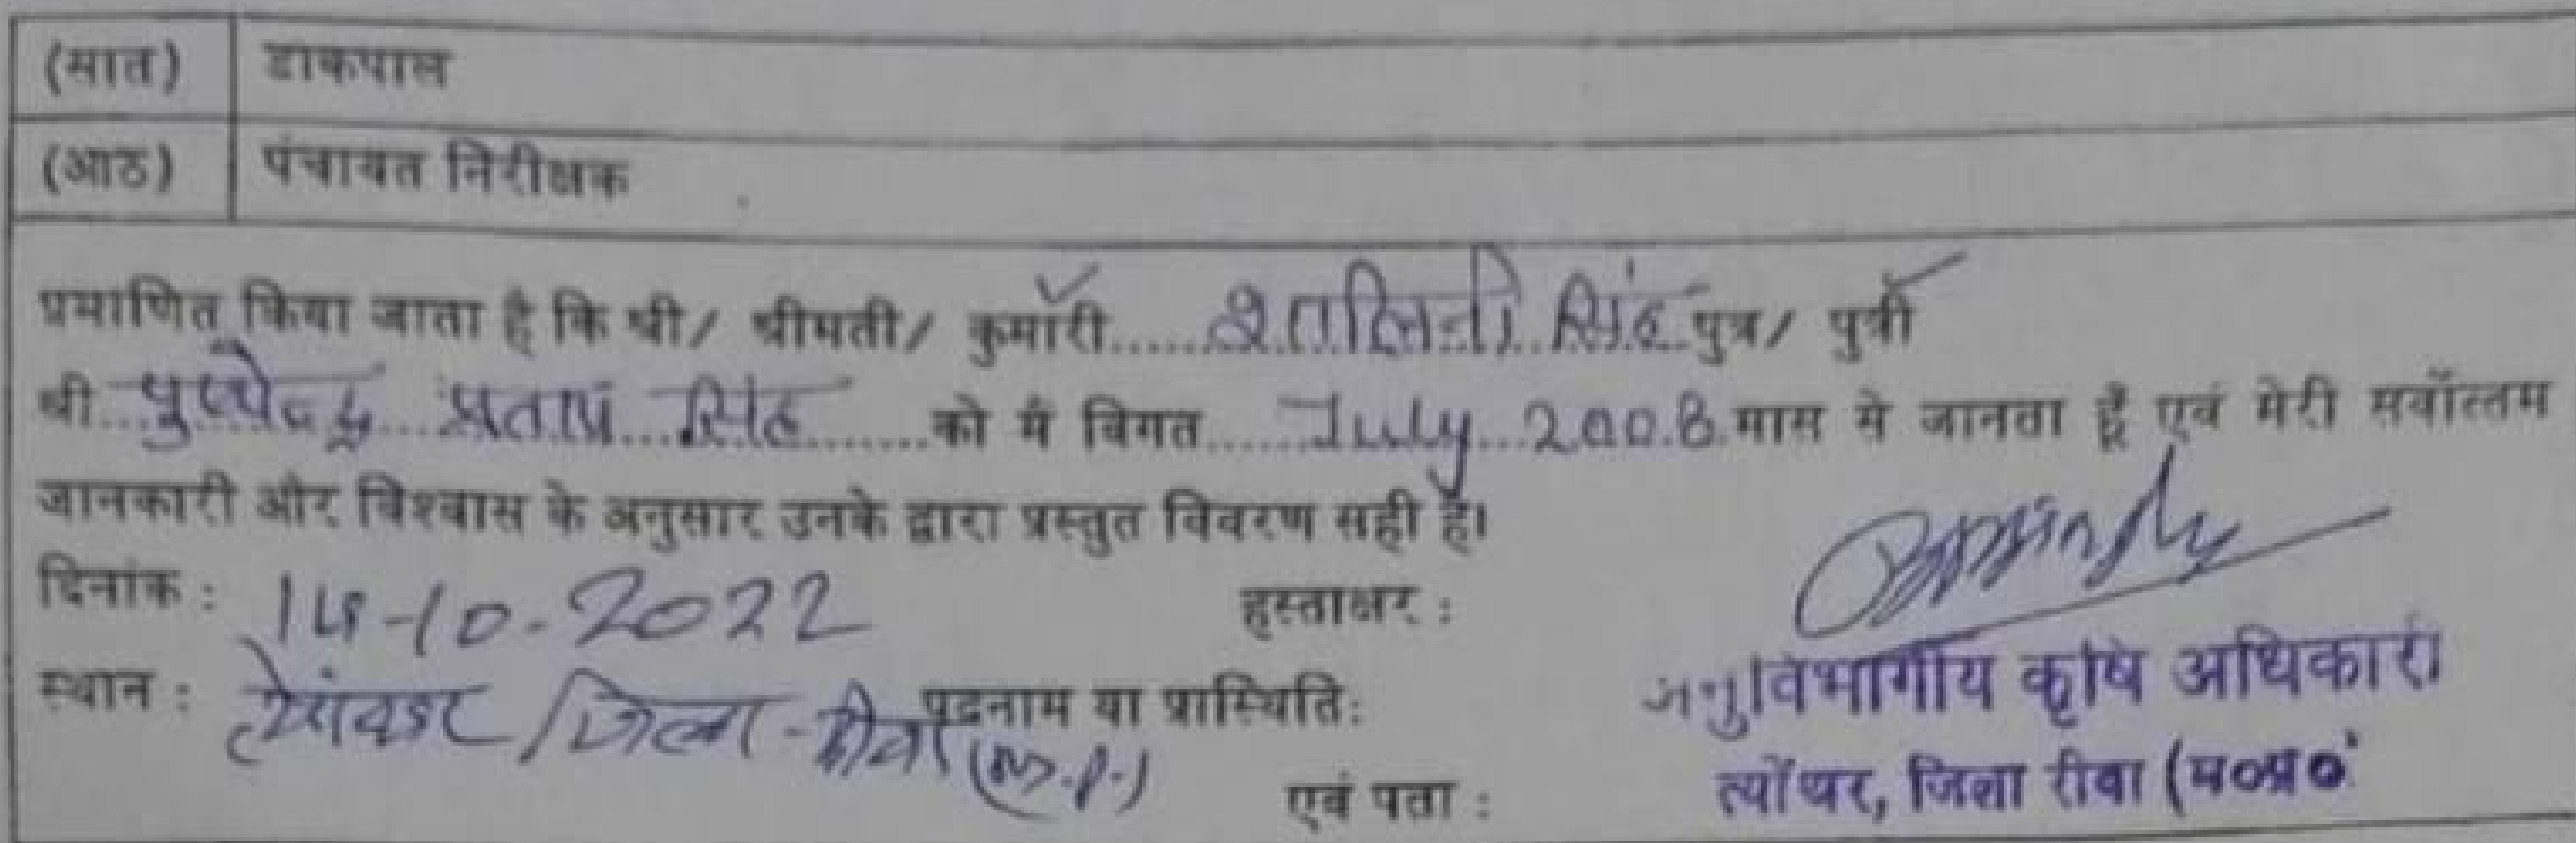 (सात) डाकपाल
(आठ) पंचायत निरीक्षक
प्रमाणित किया जाता है कि श्री/ श्रीमती/ कुमारी.....शालिनी सिंह..पुत्र/ पुत्री
श्री...पुष्पेन्द्र...प्रताप...सिंह........को मैं विगत......July...2008.मास से जानता हूँ एवं मेरी सर्वोत्तम
जानकारी और विश्वास के अनुसार उनके द्वारा प्रस्तुत विवरण सही है।
दिनांक : 14-10-2022 हस्ताक्षर :
स्थान : त्योंथर / जिला - रीवा (M.P.) पदनाम या प्रास्थिति:
अनुविभागीय कृषि अधिकारी
एवं पता : त्योंथर, जिला रीवा (म०प्र०